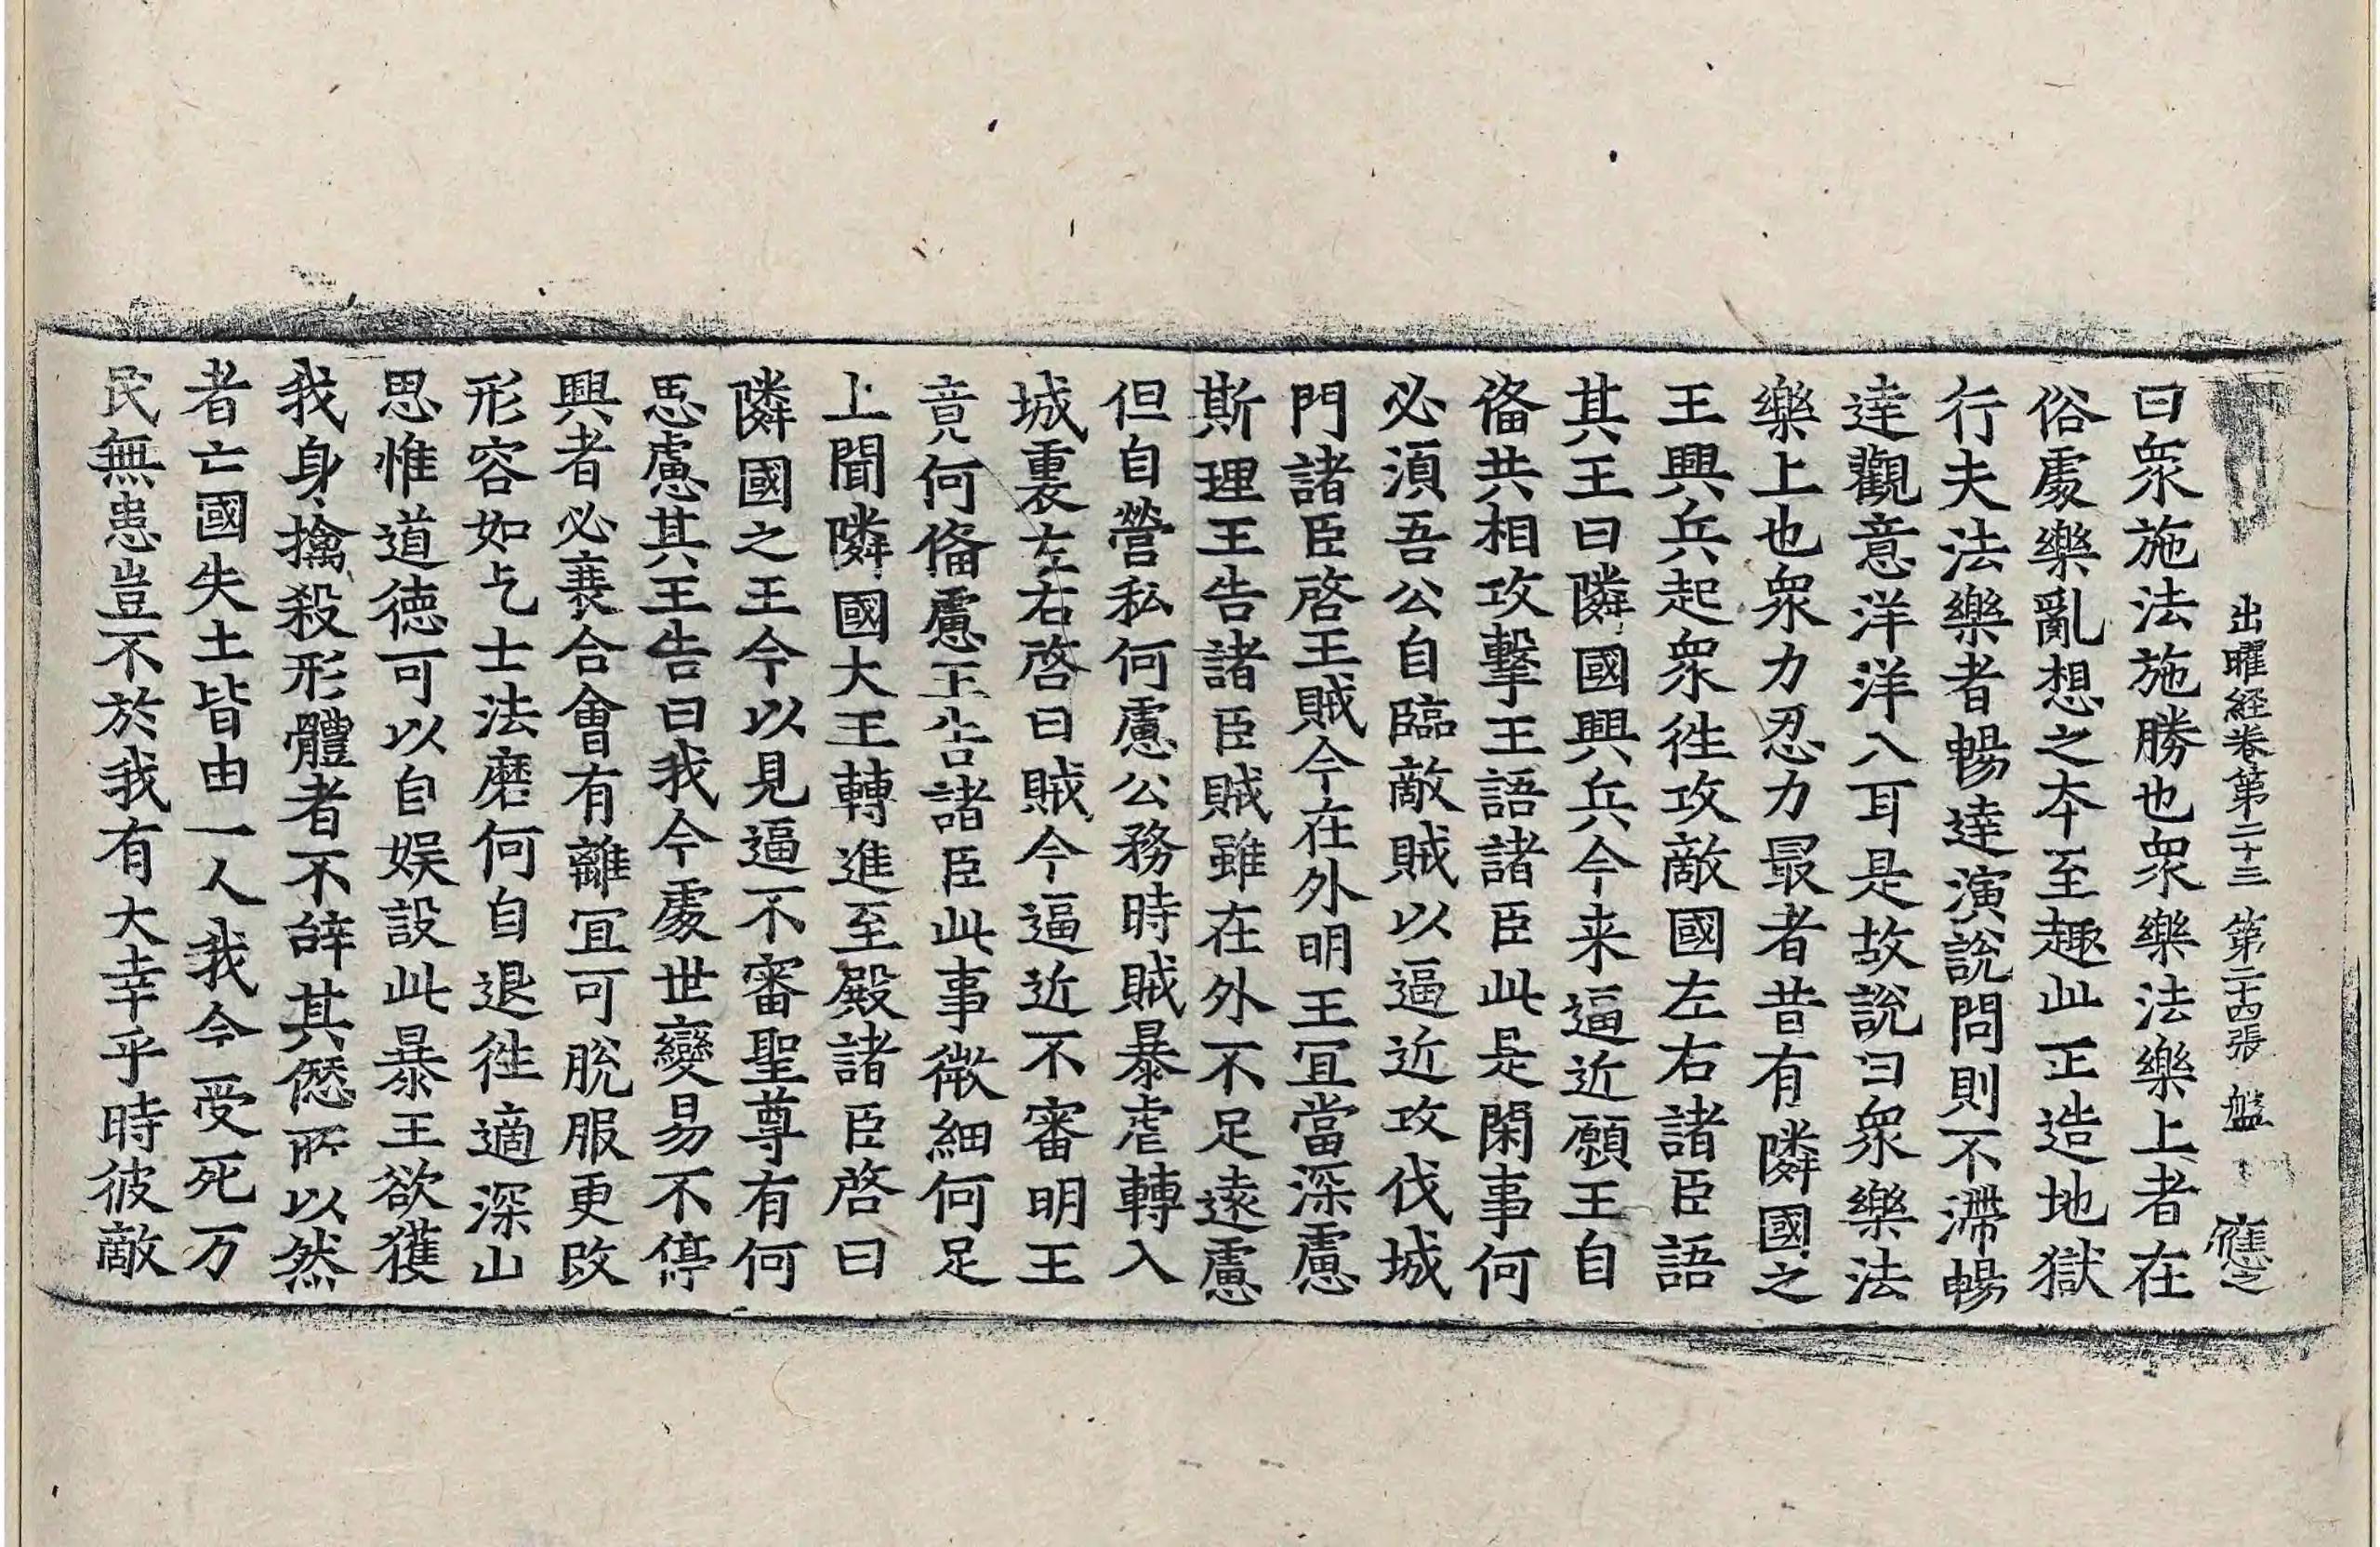 出曜経卷第二十三 第二十四張 盤 應之
曰衆施法施勝也衆樂法樂上者在
俗處樂亂想之本至趣此正造地獄
行夫法樂者暢達演說問則不滯暢
達觀意洋洋入耳是故說曰衆樂法
樂上也衆力忍力最者昔有隣國之
王興兵起衆徃攻敵國左右諸臣語
其王曰隣國興兵今来逼近願王自
俻共相攻擊王語諸臣此是閑事何
必湏吾公自臨敵賊以逼近攻伐城
門諸臣啓王賊今在外明王冝當深慮
斯理王告諸臣賊雖在外不足遠慮
但自營私何慮公務時賊暴虐轉入
城裏左右啓曰賊今逼近不審明王
竟何俻慮王告諸臣此事微細何足
上聞隣國大王轉進至殿諸臣啓曰
隣國之王今以見逼不審聖尊有何
思慮其王告曰我今處世變易不停
興者必衰合會有離冝可脫服更改
形容如乞士法磨何自退徃適深山
思惟道德可以自娱設此暴王欲獲
我身擒殺形體者不辝其𠍴所以然
者亡國失土皆由一人我今受死万
民無患豈不於我有大幸乎時彼敵